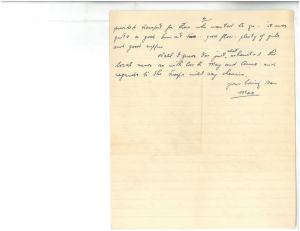 2
provided transport for those who wanted to go. it was
quite a good turnout too. good floor, plenty of girls
and good supper.
Well I guess I've just about exhausted the
local news so with love to May and and
regards to the troops will say cheerio.
your loving son
Max